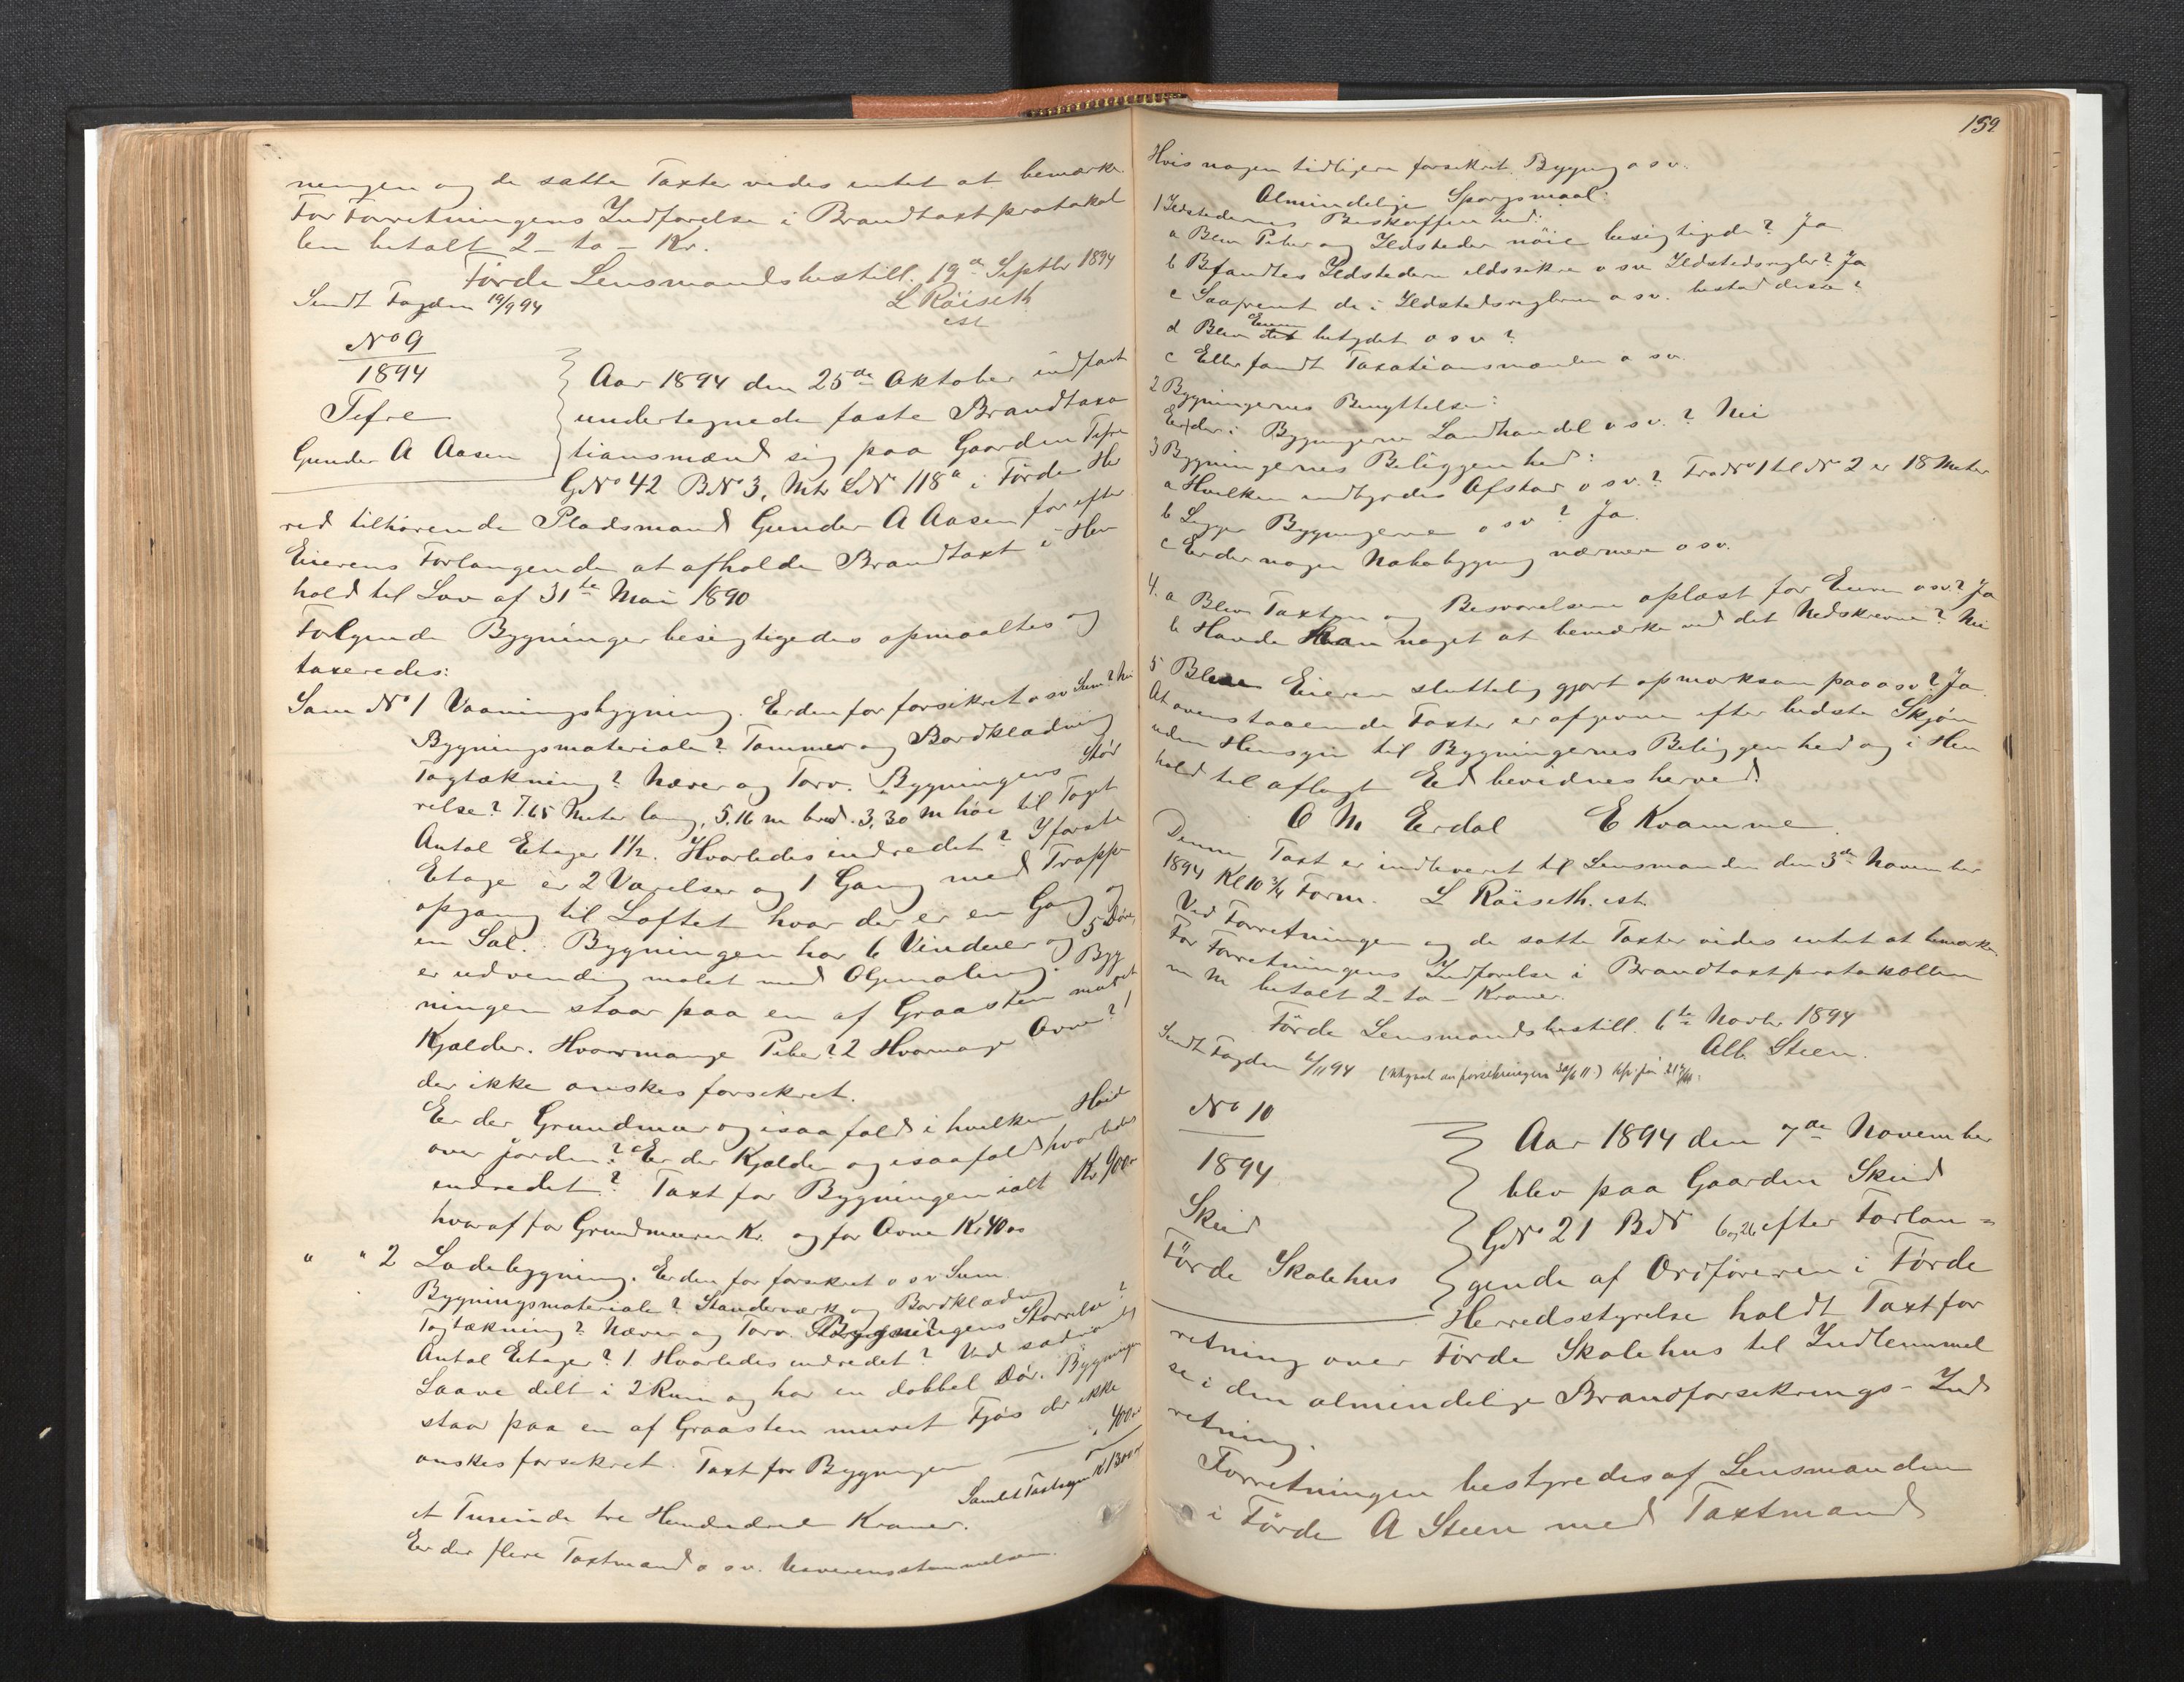 ningen og de satte Taxter vides intet at bemærke
For Forretningens Indførelse i Brandtaxtprotokol
len betalt 2 - to - Kr.
Förde Lensmandsbestill. 19de Septbr 1894
Sendt Fogden 19/9 94
L Röiseth
est
No 9
1894
Tefre
Gunder A Aasen
Aar 1894 den 25de Oktober indfant
undertegnede faste Brandtaxa
tionsmænd sig paa Gaarden Tefre
GNo 42 BNo 3, Mtr LNo 118a i Förde Her
red tilhörende Pladsmand Gunder A Aasen for efter
Eierens Forlangende at afholde Brandtaxt i Hen
hold til Lov af 31te Mai 1890
Fölgende Bygninger besigtigedes opmaaltes og
taxeredes:
Som No 1 Vaaningsbygning. Er den før forsikret o s v Sum? Nei
Bygningsmateriale? Tømmer og Bordklædning
Tagtækning? Næver og Torv. Bygningens Stör
relse? 7.65 Meter lang, 5,16 m bred. 3,30 m höi til Taget
Antal Etager 1½. Hvorledes indredet? I förste
Etage er 2 Værelser og 1 Gang med Trappe
opgang til Loftet hvor der er en Gang og
en Sal. Bygningen har 6 Vinduer og 5 Döre,
er udvendig malet med Oljemaling. Byg
ningen staar paa en af Graasten muret
Kjælder. Hvormange Piber? 2 Hvormange Ovne? 1
der ikke ønskes forsekret.
Er der Grundmur og isaafald i hvilken Höide
over jorden? Er der Kjælder og isaafald hvorledes
indredet? Taxt for Bygningen ialt Kr 900
hvoraf for Grundmuren Kr. og for Ovne Kr 40 00
" " 2 Ladebygning. Er den før forsekret o s v Sum
Bygningsmateriale? Standerværk og Bordklædning
Tagtækning? Næver og Torv. Bygningens Störrelse?
Antal Etager? 1. Hvorledes indredet? Ved
Laave delt i 2 Rum og har en dobbel Dör. Bygningen
staar paa en af Graasten muret Fjös der ikke
ønskes forsekret. Taxt for Bygningen " 400
Samlet Taxtsum Kr 1300
et Tusinde tre Hundrede Kroner.
Er der flere Taxtmænd o s v. Uoverensstemmelsen.
159
Hvis nogen tidligere forsekret Bygning o s v.
Almindelige Spørgsmaal:
1 Ildstedernes Beskaffenhed:
a Blev Piber og Ildsteder nöie besigtigede? Ja
b Befandtes Ildstederne ildssikre o s v Ildstedsregler? Ja
c Saafremt de i Ildstedsreglerne o s v. bestod disse?
d Blev Eieren det betydet o s v?
e Eller fandt Taxationsmænden o s v.
2 Bygningernes Benyttelse:
Er der i Bygningerne Landhandel o s v.? Nei
3 Bygningernes Beliggenhed:
a Hvilken indbyrdes Afstand o s v.? Fra No 1 til No 2 er 18 Meter
b Ligger Bygningerne o s v? Ja.
c Er der nogen Nabobygning nærmere o s v.
4. a Blev Taxten og Besvarelserne oplæst for Eieren o s v? Ja
b Havde Han noget at bemærke ved det Nedskrevne? Nei
5 Blev Eieren sluttelig gjort opmærksom paa o s v? Ja.
At ovenstaaende Taxter er afgivne efter bedste Skjön
uden Hensyn til Bygningernes Beliggenhed og i Hen
hold til aflagt Eed bevidnes herved.
O M Erdal E Kvamme.
Denne Taxt er indleveret til Lensmanden den 3de November
1894 Kl 10 3/4 Form. L Röiseth. est.
Ved Forretningen og de satte Taxter vides intet at bemærke
For Forretningens Indførelse i Brandtaxtprotokollen
m m betalt 2 - to - Kroner.
Förde Lensmandsbestill. 6te Novbr 1894
Alb. Steen.
Sendt Fogden 6/11 94
No 10
1894
Skeid
Förde Skolehus
Aar 1894 den 7de November
blev paa Gaarden Skeid
GNo 21 BN 6 og 26 efter Forlan=
gende af Ordföreren i Förde
Herredsstyrelse holdt Taxtfor
retning over Förde Skolehus til Indlemmel
se i den almindelige Brandforsekrings-Ind
retning.
Forretningen bestyredes af Lensmanden
i Förde A Steen med Taxtmænd